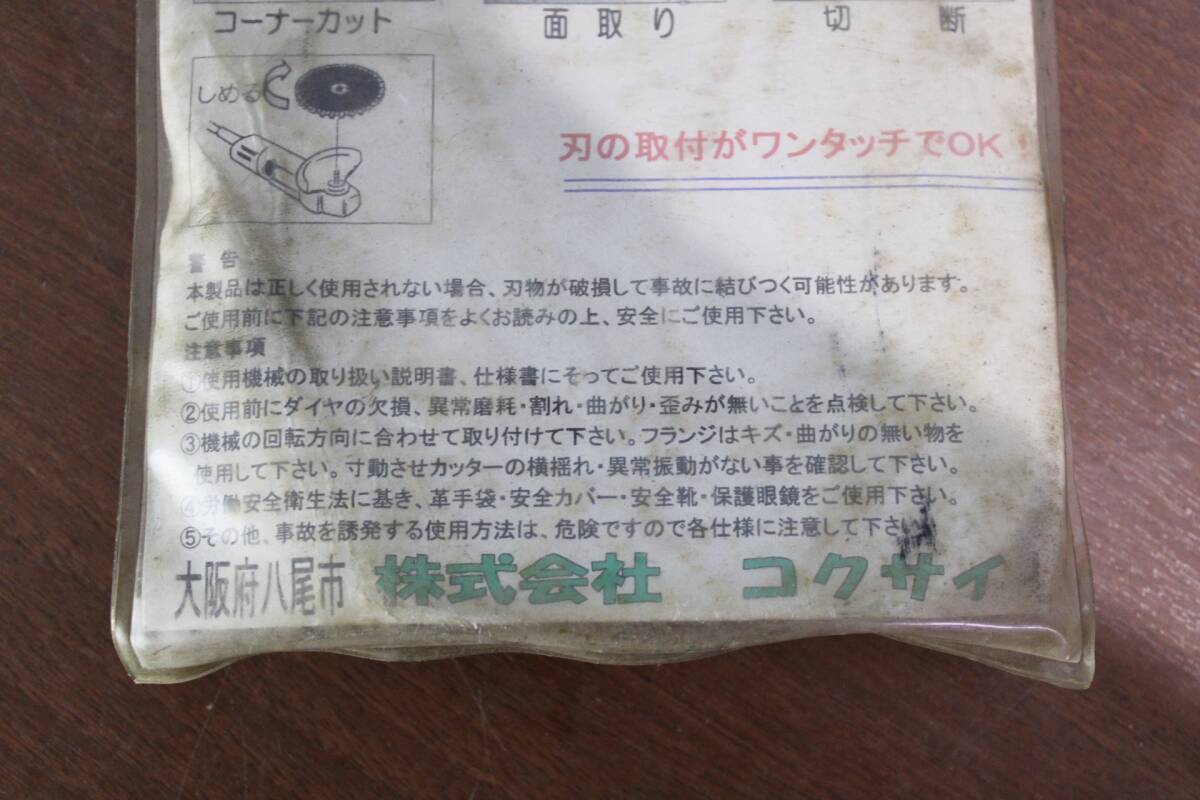 コーナーカット 面取り 切断
しめる
刃の取付がワンタッチでOK！
警告
本製品は正しく使用されない場合、刃物が破損して事故に結びつく可能性があります。
ご使用前に下記の注意事項をよくお読みの上、安全にご使用下さい。
注意事項
①使用機械の取り扱い説明書、仕様書にそってご使用下さい。
②使用前にダイヤの欠損、異常磨耗・割れ・曲がり・歪みが無いことを点検して下さい。
③機械の回転方向に合わせて取り付けて下さい。フランジはキズ・曲がりの無い物を
使用して下さい。寸動させカッターの横揺れ・異常振動がない事を確認して下さい。
④労働安全衛生法に基き、革手袋・安全カバー・安全靴・保護眼鏡をご使用下さい。
⑤その他、事故を誘発する使用方法は、危険ですので各仕様に注意して下さい。
大阪府八尾市 株式会社 コクサイ